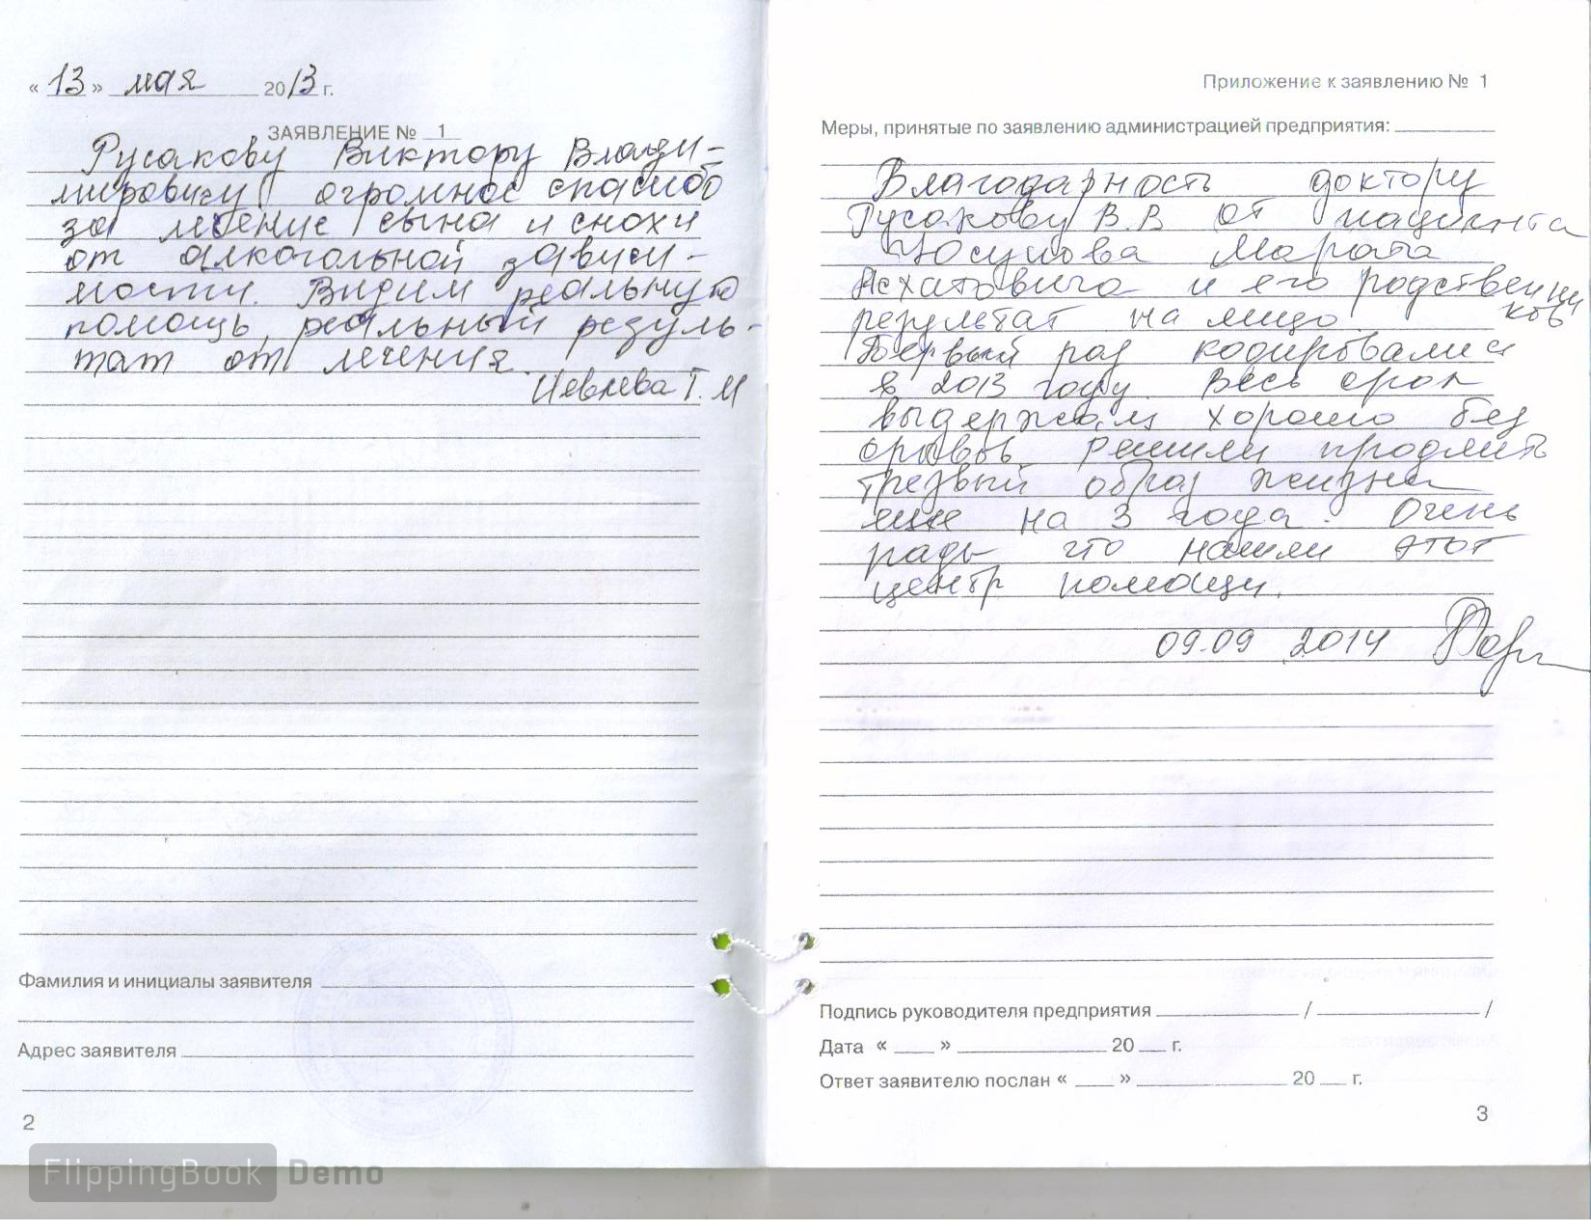 «13» мая 2013 г.
ЗАЯВЛЕНИЕ № 1
Русакову Виктору Влади-
мировичу огромное спасибо
за лечение сына и снохи
от алкогольной зависи-
мости. Видим реальную
помощь, реальный резуль-
тат от лечения.
Иевлева Т. М
Фамилия и инициалы заявителя
Адрес заявителя
2
Приложение к заявлению № 1
Меры, принятые по заявлению администрацией предприятия:
Благодарность доктору
Русакову В.В от пациента
Юсупова Марата
Асхатовича и его родственни
ков
результат на лицо.
Первый раз кодировались
в 2013 году. Весь срок
выдержали хорошо без
срывов решили продлить
трезвый образ жизни
еще на 3 года. Очень
рады что нашли этот
центр помощи.
09.09 2014
Подпись руководителя предприятия / /
Дата « » 20 г.
Ответ заявителю послан « » 20 г.
3
FlippingBook Demo